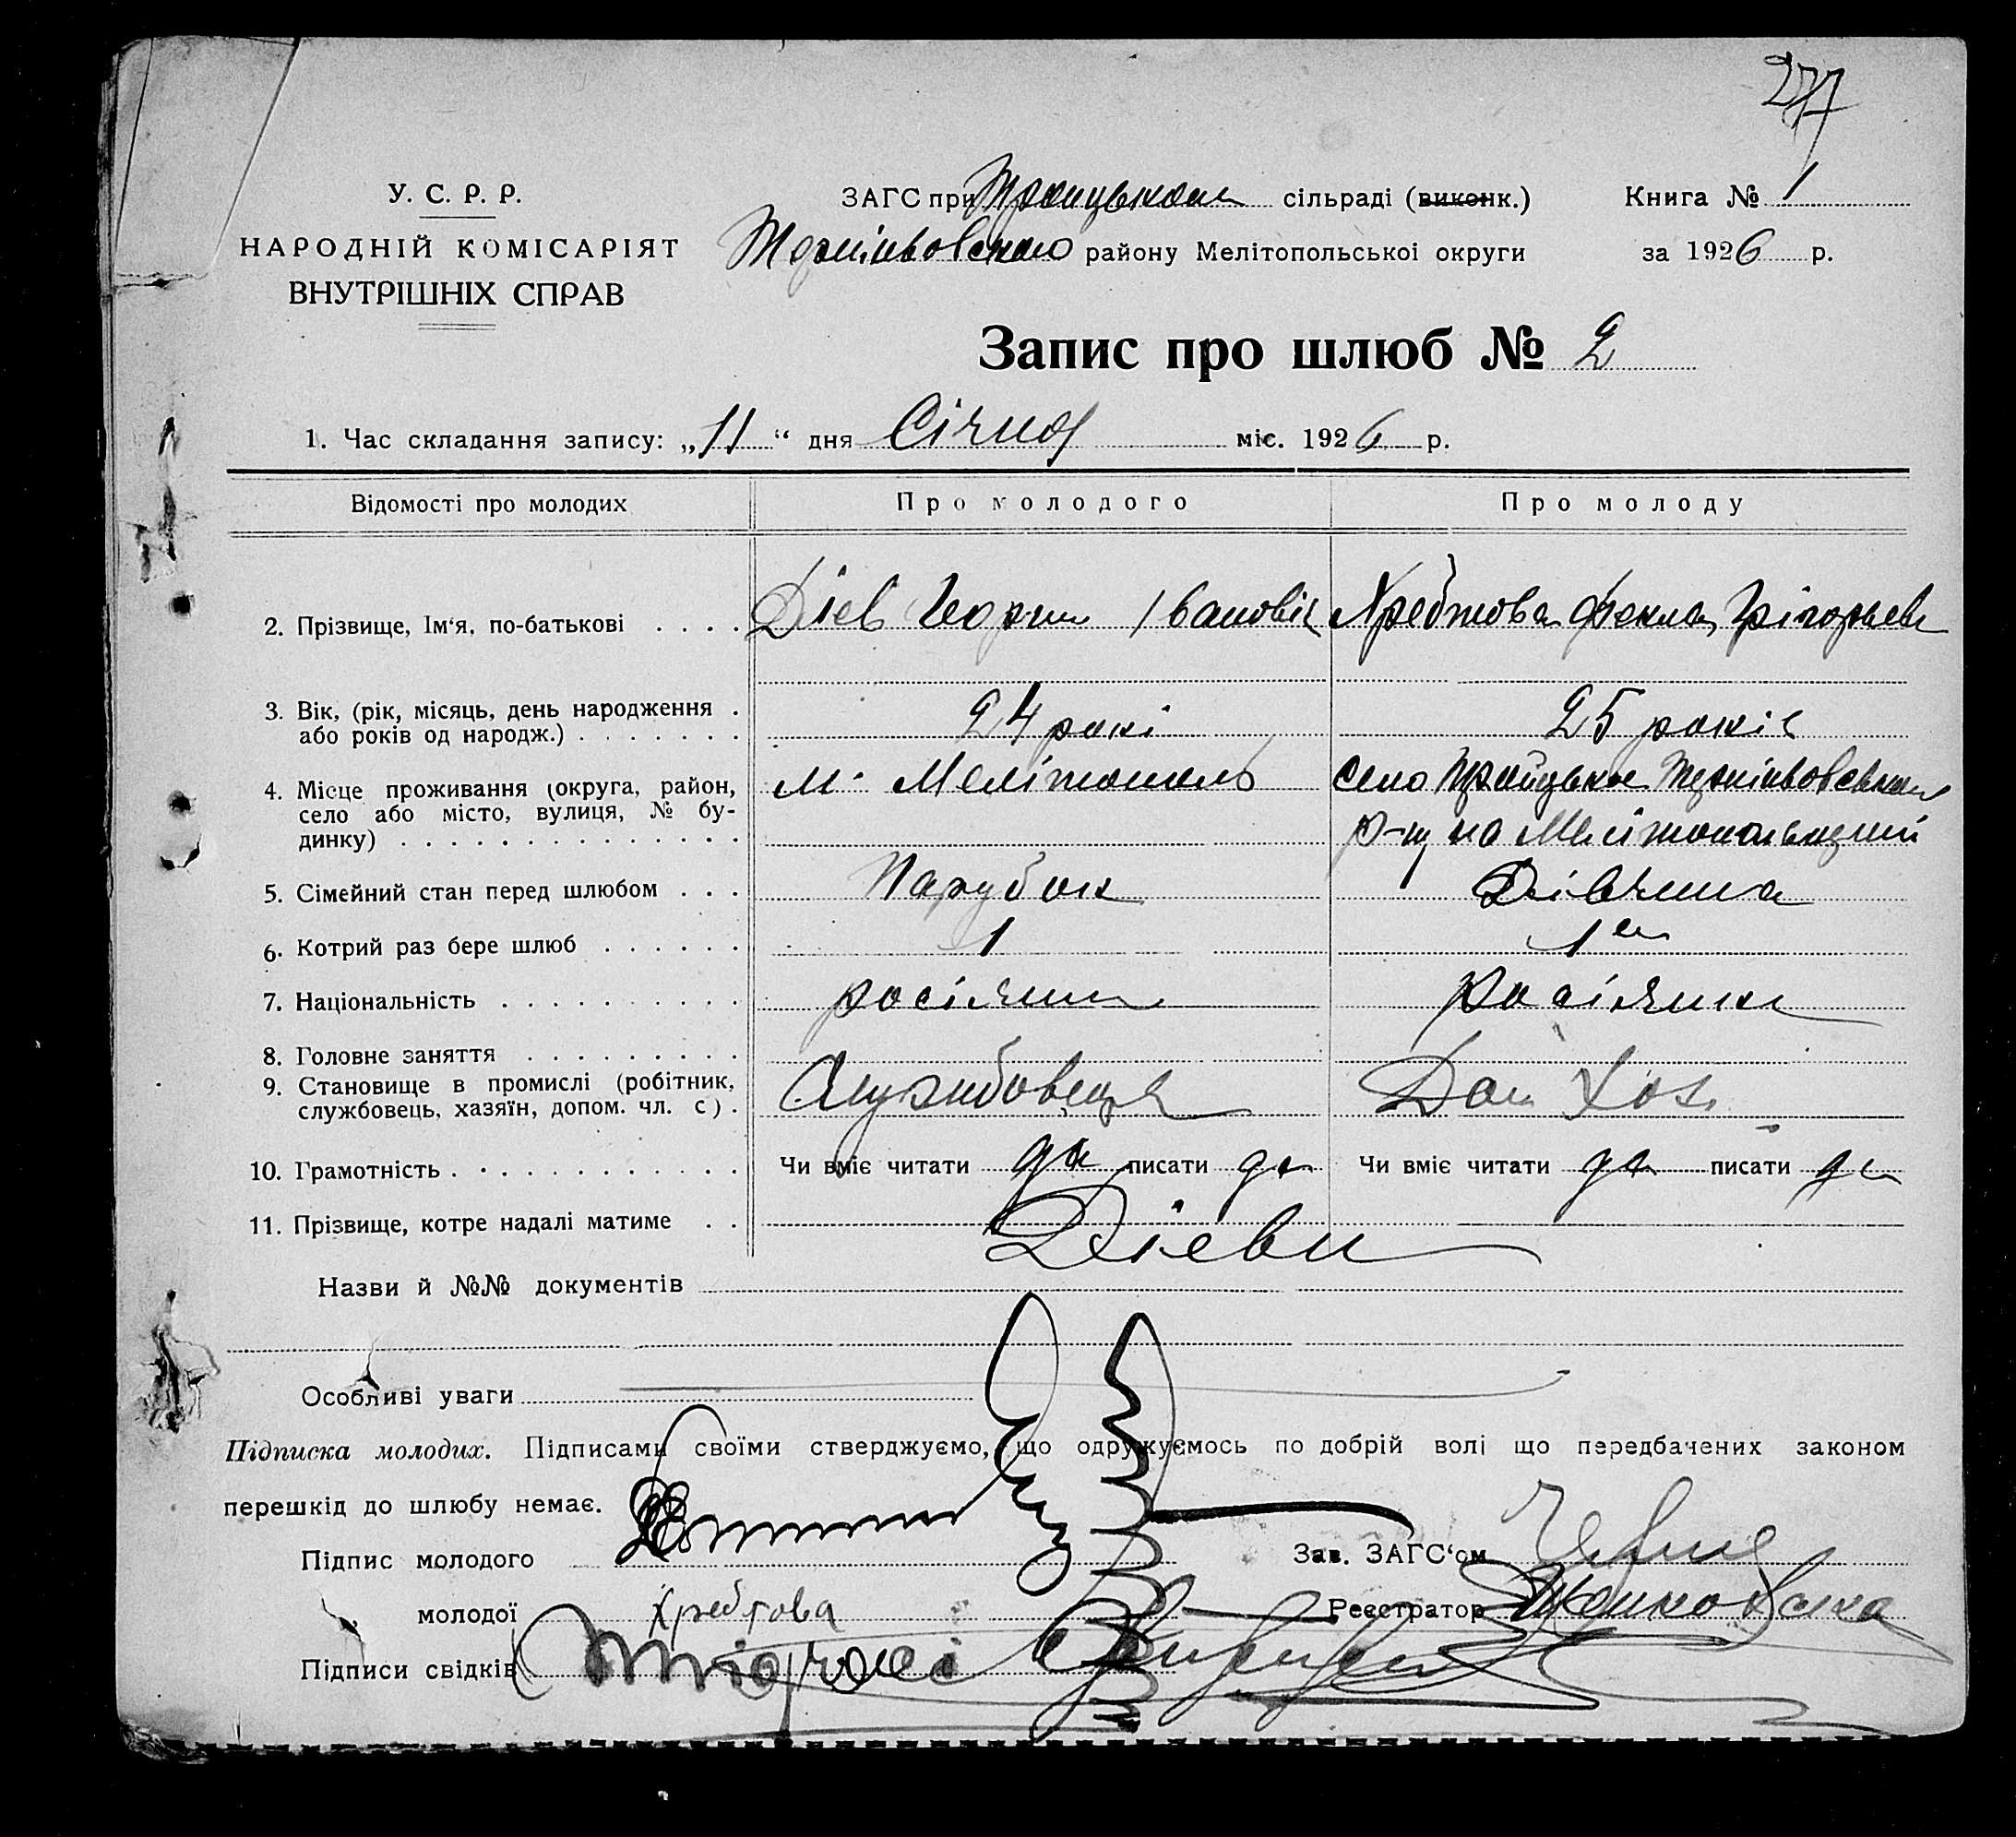 277
У. С. Р. Р.
НАРОДНІЙ КОМІСАРІЯТ
ВНУТРІШНІХ СПРАВ
ЗАГС при Троицьком сільраді (виконк.)
Терпіньовского району Мелітопольської округи
Книга № 1
за 1926 р.
Запис про шлюб № 2
1. Час складання запису: „11“ дня Січня міс. 1926 р.
Відомості про молодих Про молодого Про молоду
2. Прізвище, Ім'я, по-батькові . . . . Дієв Георгии Івановіч Хребтова Фекла Грігорьев
3. Вік, (рік, місяць, день народження .
або років од народж.) . . . . . . . 24 рокі 25 років
4. Місце проживання (округа, район,
село або місто, вулиця, № бу-
динку) . . . . . . . . . . . . . . .
м. Мелітополь
село Троицьке Терпіньовськаго
р-ну на Мелітопольщині
5. Сімейний стан перед шлюбом . . . Парубок Дівчина
6. Котрий раз бере шлюб . . . . . . 1 1й
7. Національність . . . . . . . . . . росіянин росіянка
8. Головне заняття . . . . . . . . .
9. Становище в промислі (робітник,
службовець, хазяїн, допом. чл. с) . Службовець Дом Хоз.
10. Грамотність . . . . . . . . . . . . Чи вміє читати да писати да Чи вміє читати да писати да
11. Прізвище, котре надалі матиме . . Дієви
Назви й №№ документів
Особливі уваги
Підписка молодих. Підписами своїми стверджуємо, що одружуємось по добрій волі що передбачених законом
перешкід до шлюбу немає.
Підпис молодого
Зав. ЗАГС'ом
молодої Хребтова
Реєстратор
Підписи свідків